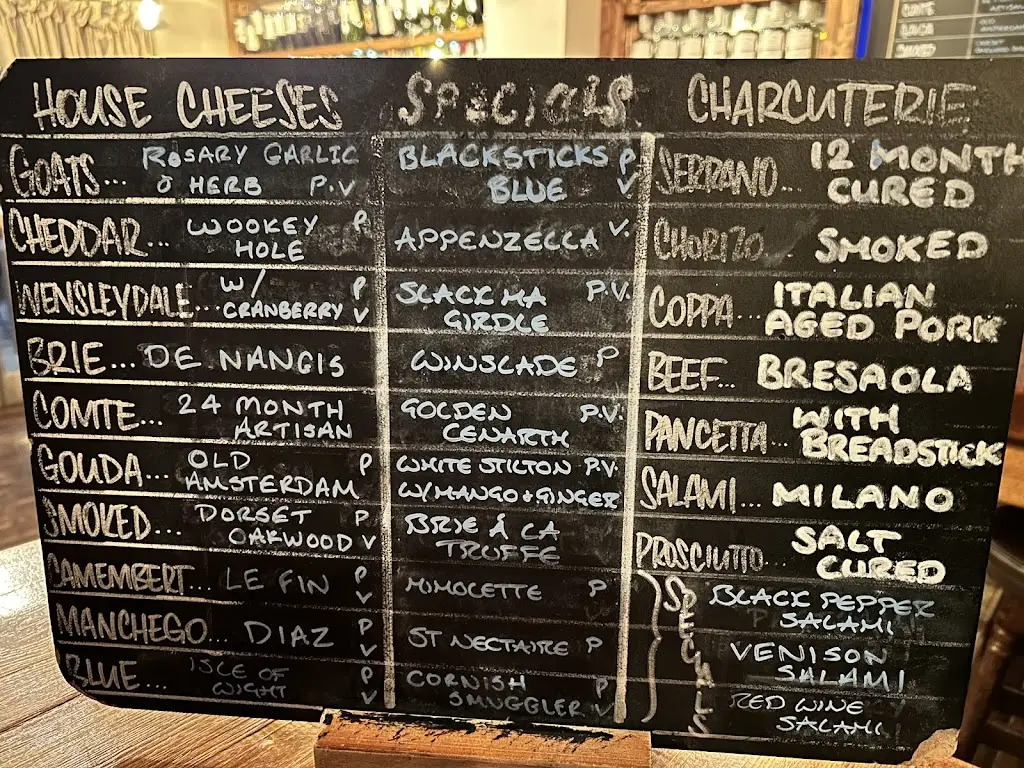 HOUSE CHEESES
GOATS... ROSARY GARLIC
& HERB P.V
CHEDDAR... WOOKEY P
HOLE V
WENSLEYDALE... W/ P
CRANBERRY V
BRIE... DE NANGIS
COMTE... 24 MONTH
ARTISAN
GOUDA... OLD P
AMSTERDAM
SMOKED... DORSET P
OAKWOOD V
CAMEMBERT... LE FIN P
V
MANCHEGO... DIAZ P
V
BLUE... ISLE OF P
WIGHT V
SPECIALS
BLACKSTICKS P
BLUE V
APPENZELLA V.
SLACK MA P.V.
GIRDLE
WINSLADE P
GOLDEN P.V.
CENARTH
WHITE STILTON P.V.
W/MANGO + GINGER
BRIE Á LA
TRUFFE
MIMOLETTE P
ST NECTAIRE P
CORNISH P
SMUGGLER V
CHARCUTERIE
SERRANO... 12 MONTH
CURED
CHORIZO... SMOKED
COPPA... ITALIAN
AGED PORK
BEEF... BRESAOLA
PANCETTA... WITH
BREADSTICK
SALAMI... MILANO
PROSCIUTTO... SALT
CURED
SPECIALS
BLACK PEPPER
SALAMI
VENISON
SALAMI
RED WINE
SALAMI